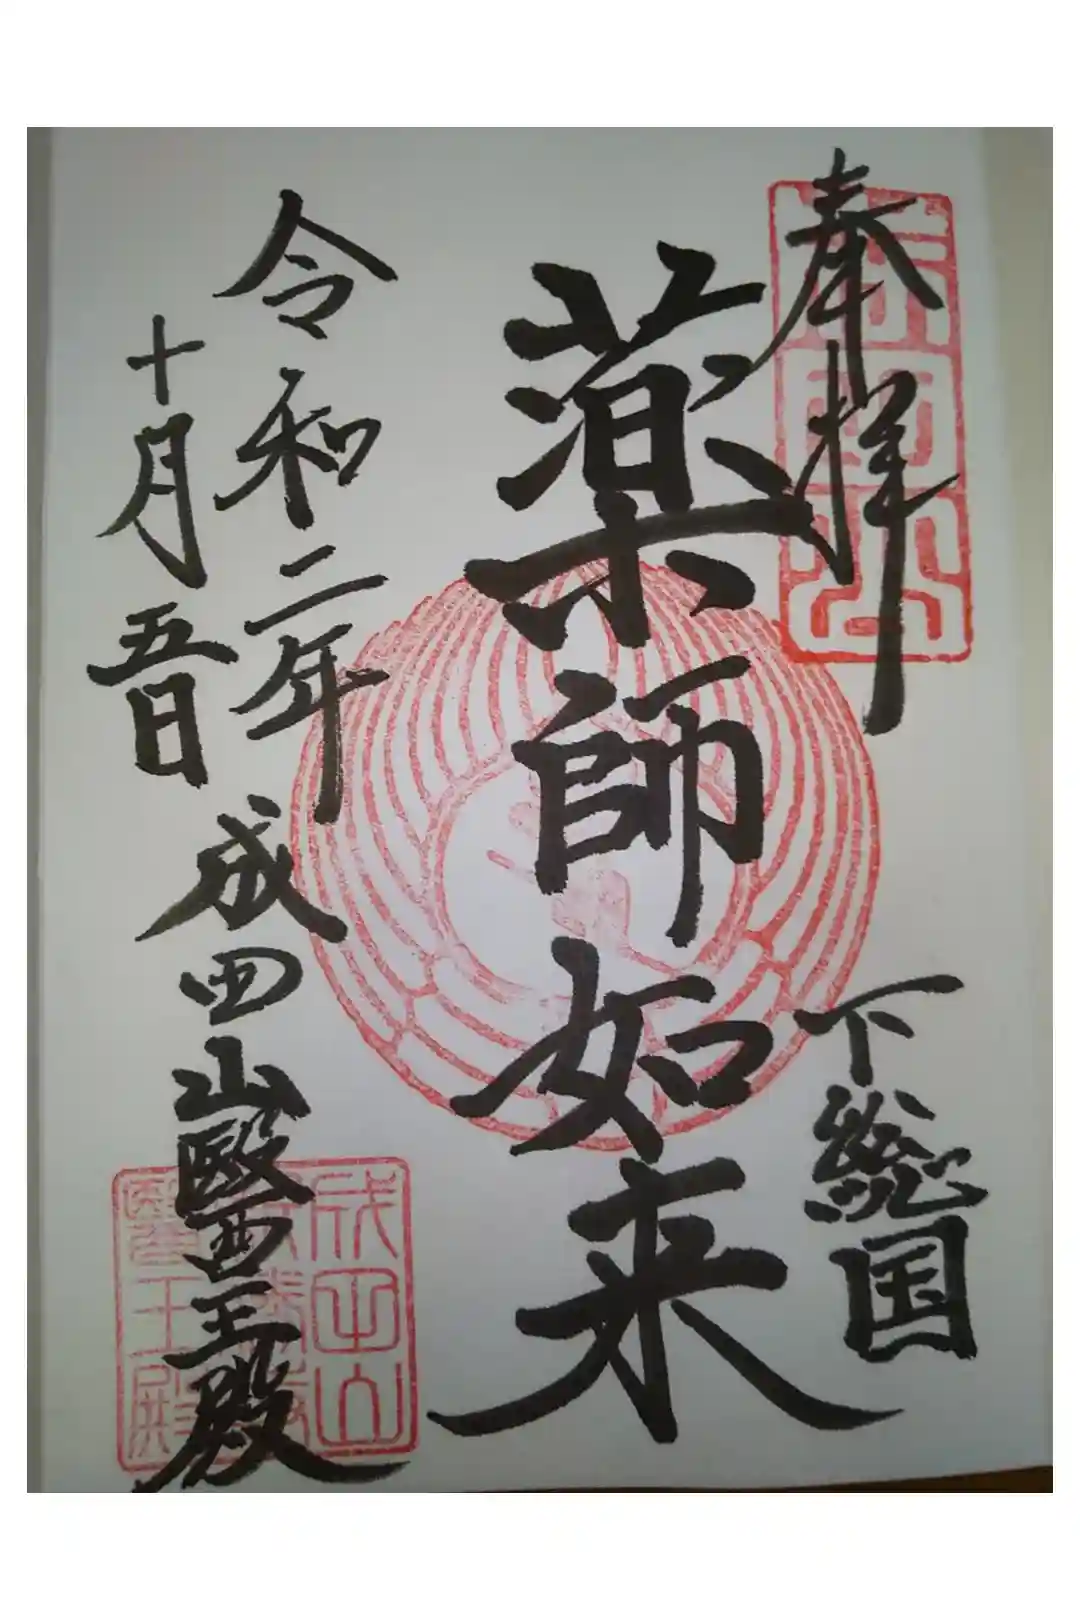 奉拝
下総国
薬師如来
令和二年
十月五日
成田山醫王殿
成田山
醫王殿